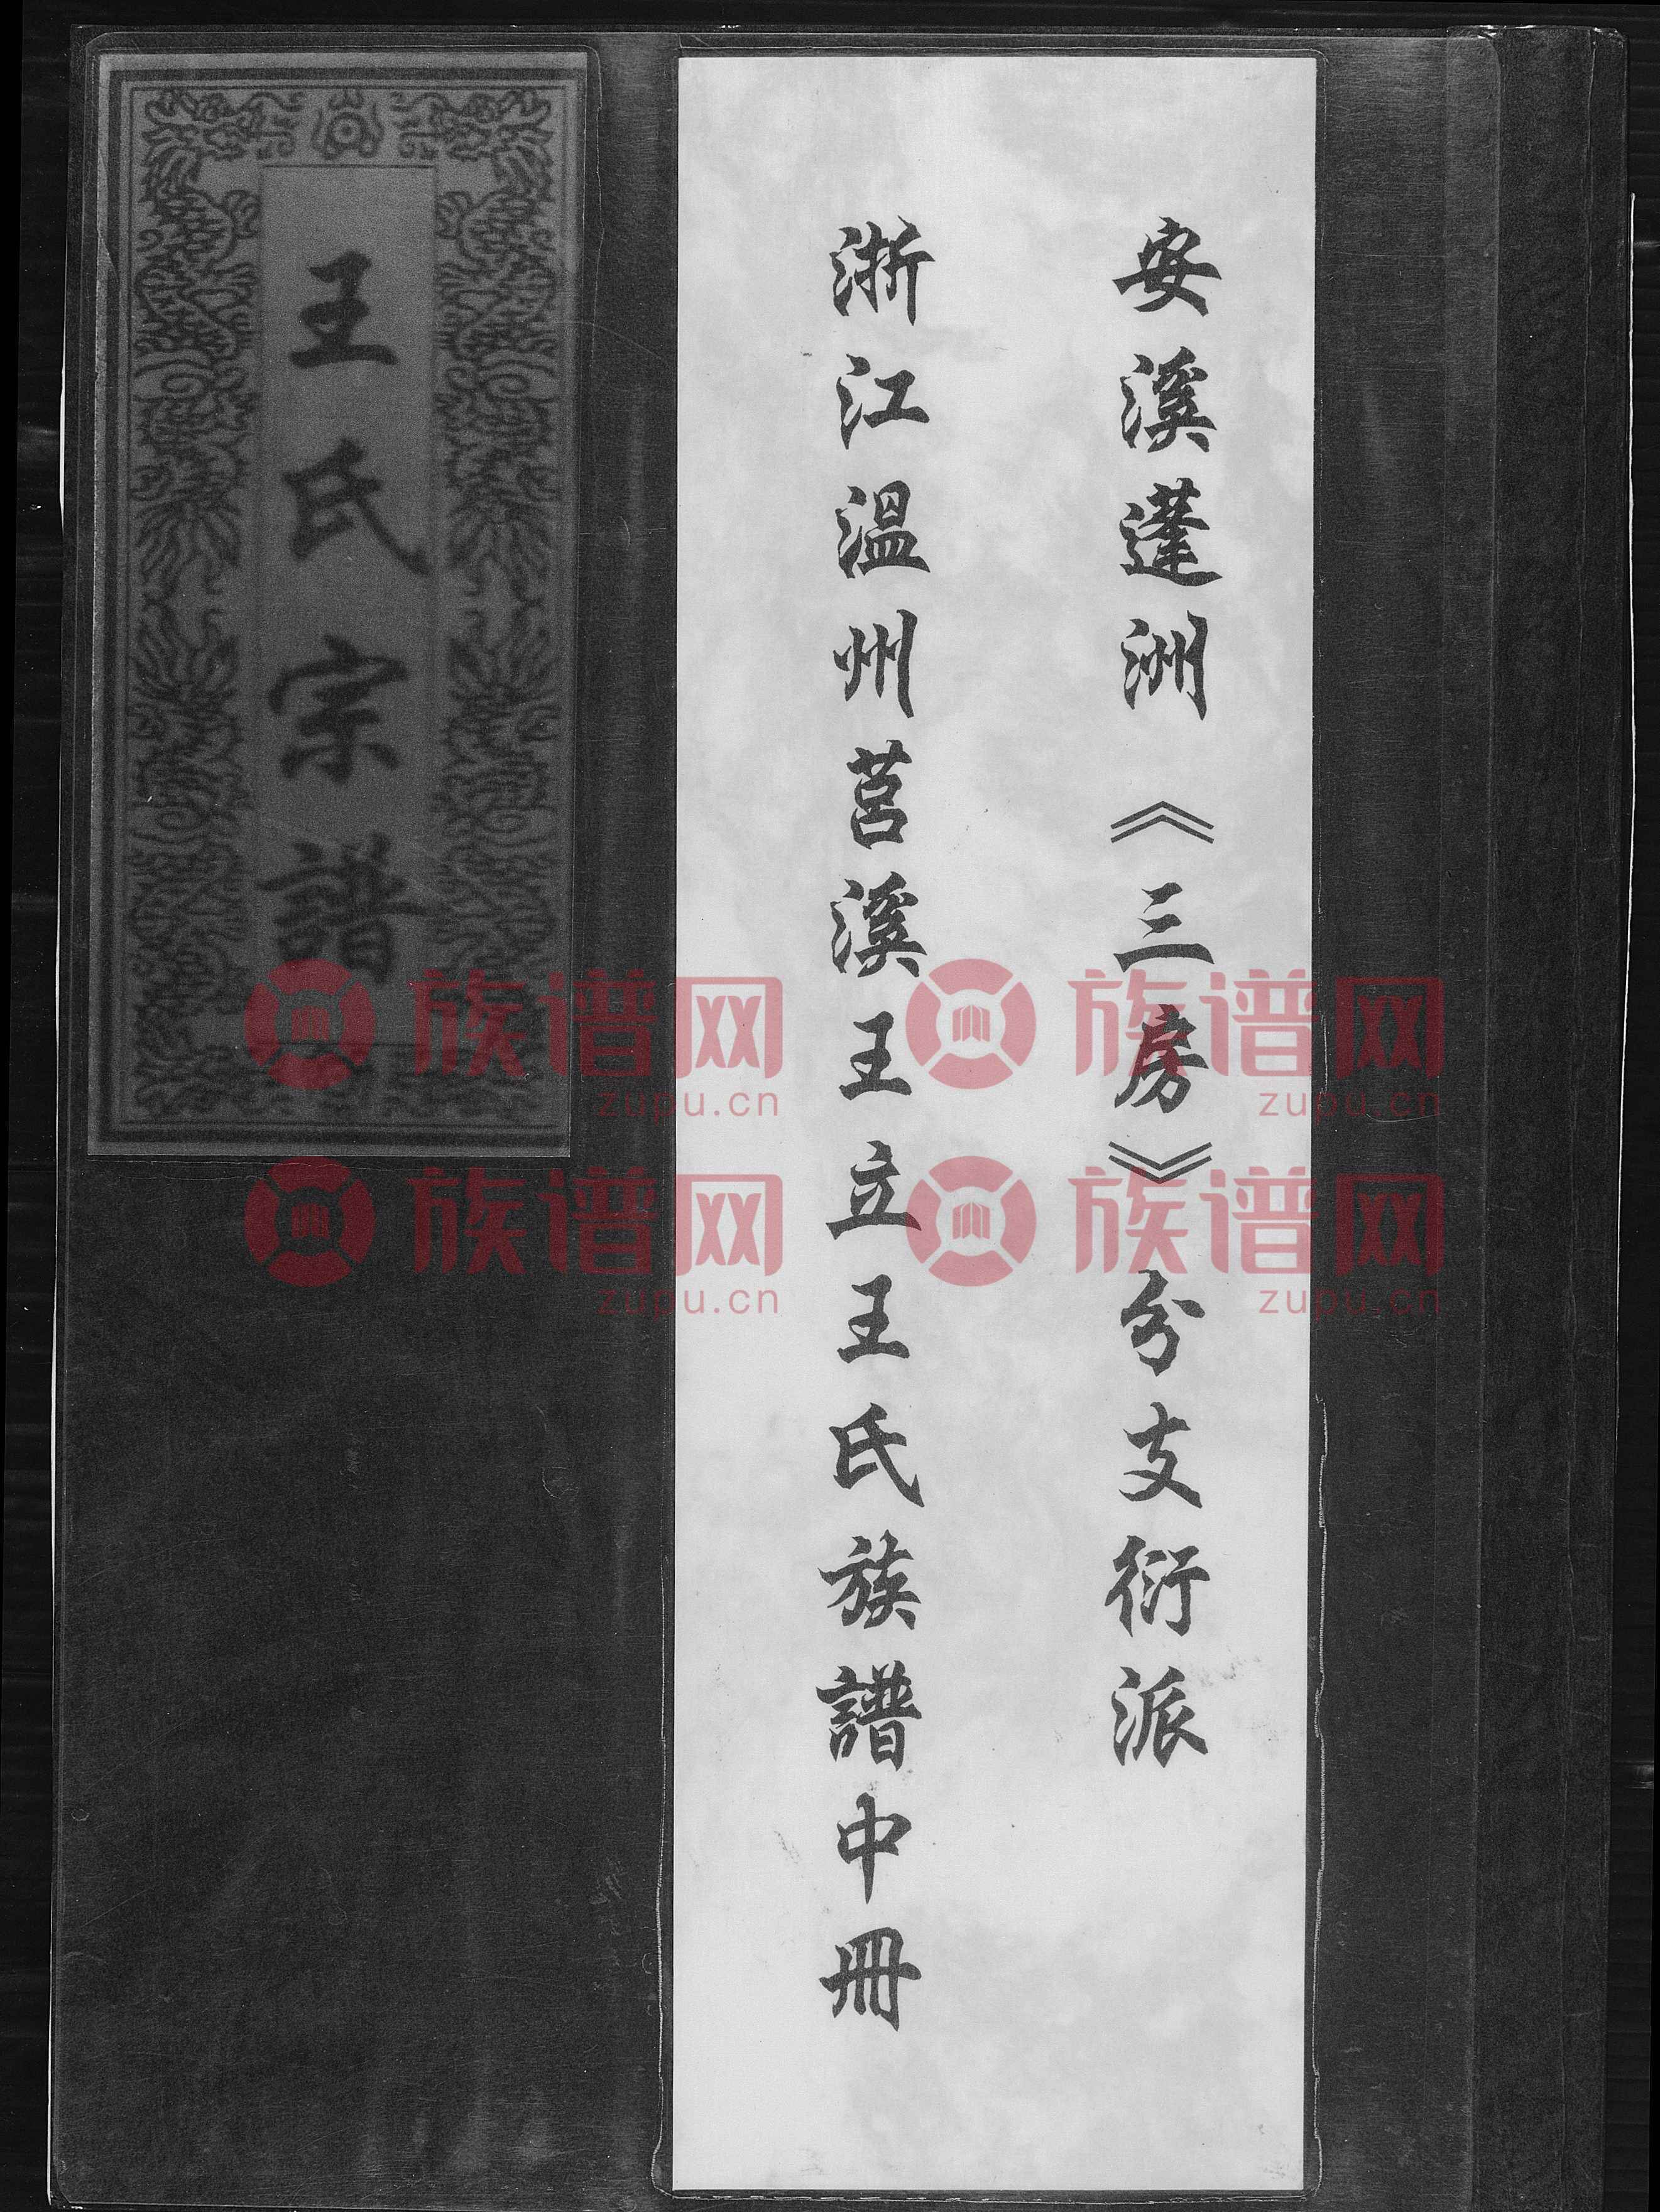 安溪蓬洲《三房》分支衍派
浙江溫州莒溪王立王氏族譜中冊
王氏宗譜
族谱网
zupu.cn
族谱网
zupu.cn
族谱网
zupu.cn
族谱网
zupu.cn